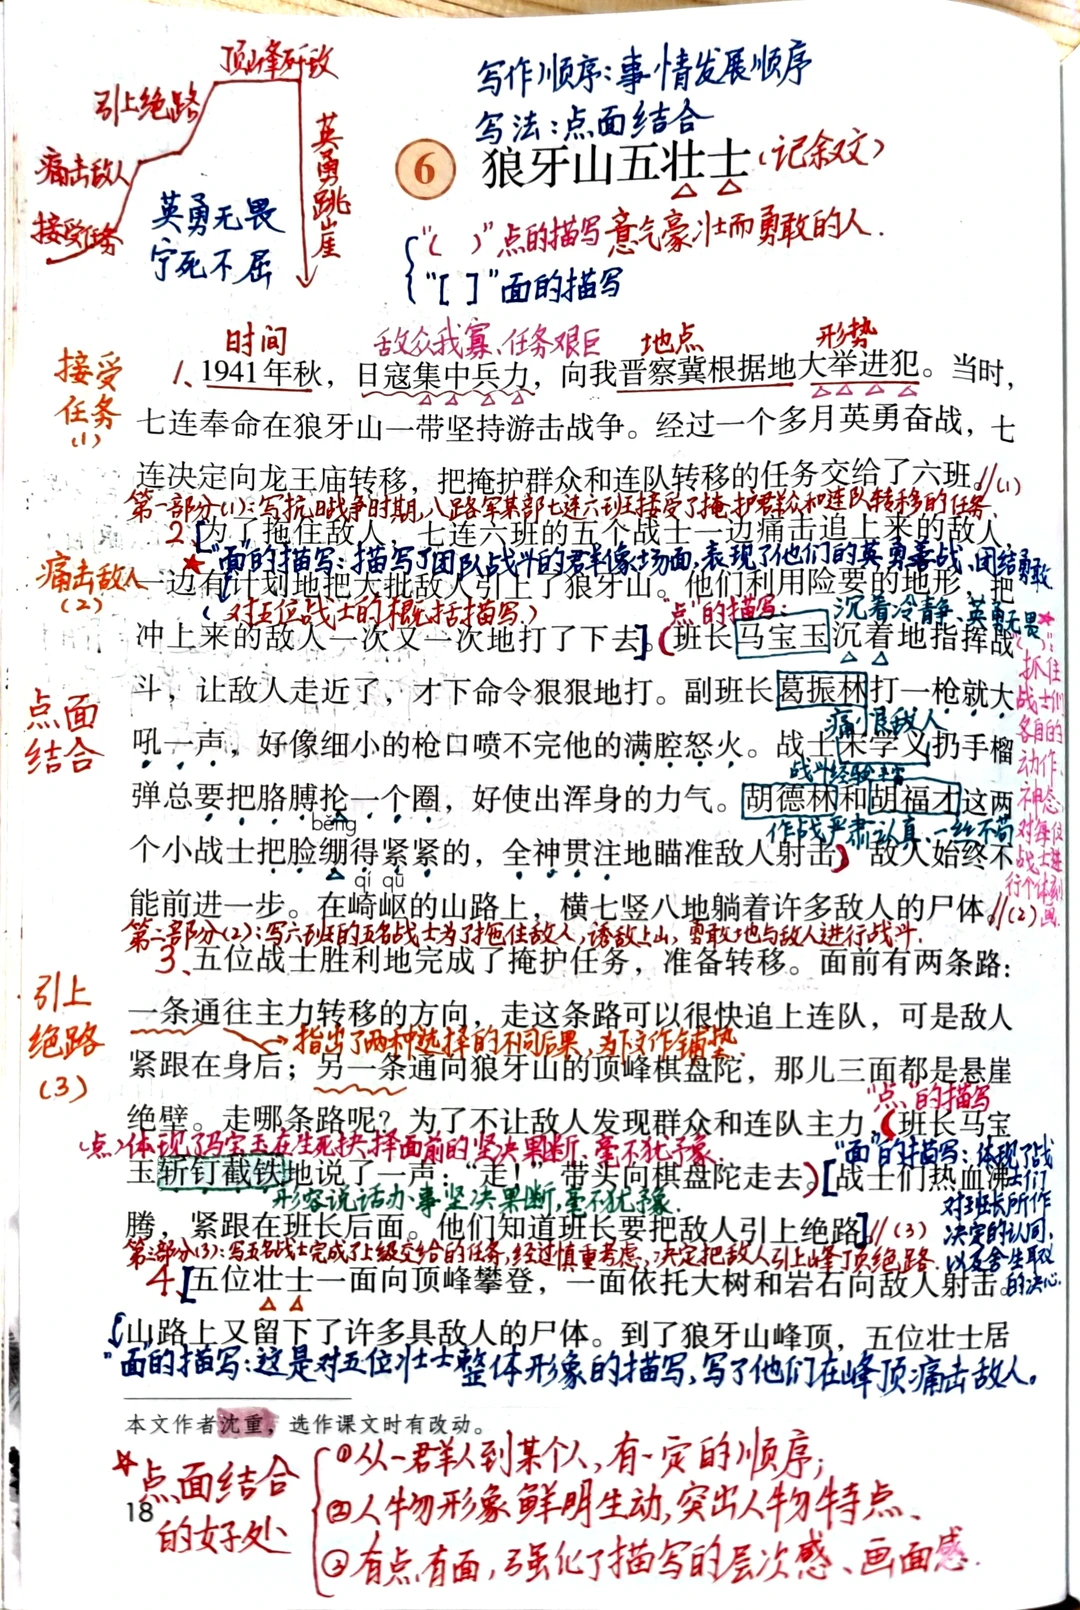 顶峰歼敌
引上绝路
痛击敌人
接受任务
英勇跳崖
英勇无畏
宁死不屈
写作顺序:事情发展顺序
写法:点面结合
6 狼牙山五壮士(记叙文)
"( )"点的描写 意气豪壮而勇敢的人.
"[ ]"面的描写
时间 敌众我寡、任务艰巨 地点 形势
接受
任务
(1)
1、1941年秋，日寇集中兵力，向我晋察冀根据地大举进犯。当时，
七连奉命在狼牙山一带坚持游击战争。经过一个多月英勇奋战，七
连决定向龙王庙转移，把掩护群众和连队转移的任务交给了六班。//(1)
第一部分(1):写抗日战争时期,八路军某部七连六班接受了掩护群众和连队转移的任务.
2、[为了拖住敌人，七连六班的五个战士一边痛击追上来的敌人，
★"面"的描写:描写了团队战斗的群像场面,表现了他们的英勇善战、团结勇敢
痛击敌人
(2)
一边有计划地把大批敌人引上了狼牙山。他们利用险要的地形，把
(对五位战士的概括描写)
"点"的描写:
沉着冷静、英勇无畏
冲上来的敌人一次又一次地打了下去。](班长马宝玉沉着地指挥战
★"( )":
抓住
战士们
各自的
动作、
神态,
对每位
战士进
行个体刻
画.
点面
结合
斗，让敌人走近了，才下命令狠狠地打。副班长葛振林打一枪就大
痛恨敌人
吼一声，好像细小的枪口喷不完他的满腔怒火。战士宋学义扔手榴
战斗经验丰富
弹总要把胳膊抡一个圈，好使出浑身的力气。胡德林和胡福才这两
作战严肃认真、一丝不苟
bēng
个小战士把脸绷得紧紧的，全神贯注地瞄准敌人射击。)敌人始终不
qí qū
能前进一步。在崎岖的山路上，横七竖八地躺着许多敌人的尸体。//(2)
第二部分(2):写六班的五名战士为了拖住敌人,诱敌上山,勇敢地与敌人进行战斗.
引上
绝路
(3)
3、五位战士胜利地完成了掩护任务，准备转移。面前有两条路：
一条通往主力转移的方向，走这条路可以很快追上连队，可是敌人
指出了两种选择的不同后果,为下文作铺垫.
紧跟在身后；另一条通向狼牙山的顶峰棋盘陀，那儿三面都是悬崖
"点"的描写
绝壁。走哪条路呢？为了不让敌人发现群众和连队主力，(班长马宝
(点)体现了马宝玉在生死抉择面前的坚决果断、毫不犹豫.
玉斩钉截铁地说了一声：“走！”带头向棋盘陀走去。)[战士们热血沸
形容说话办事坚决果断,毫不犹豫.
"面"的描写:体现了战
士们
对班长所作
决定的认同,
以及舍生取义
的决心.
腾，紧跟在班长后面。他们知道班长要把敌人引上绝路。]//(3)
第三部分(3):写五名战士完成了上级交给的任务,经过慎重考虑,决定把敌人引上峰顶绝路.
4、[五位壮士一面向顶峰攀登，一面依托大树和岩石向敌人射击。
山路上又留下了许多具敌人的尸体。到了狼牙山峰顶，五位壮士居
"面"的描写:这是对五位壮士整体形象的描写,写了他们在峰顶痛击敌人。
本文作者沈重，选作课文时有改动。
☆点面结合
的好处
①从一群人到某个人,有一定的顺序;
②人物形象鲜明生动,突出人物特点、
③有点有面,强化了描写的层次感、画面感.
18